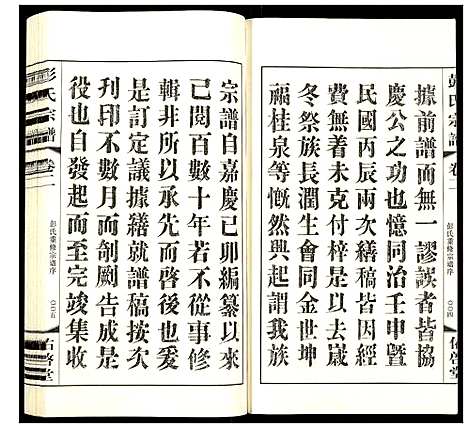 彭氏宗譜 卷一
彭氏重修宗譜序
〇〇四
佑啓堂
據前譜而無一謬誤者皆協
慶公之功也憶同治壬申曁
民國丙辰兩次繕稿皆因經
費無着未克付梓去歲
冬祭族長潤生會同金世坤
福桂泉等慨然興起謂我族
宗譜自嘉慶己卯編纂以來
已閱百數十年若不從事修
輯非所以承先而啓後也爰
是訂定議據繕就譜稿按次
刊印不數月而剞劂告成是
役也自發起而至完竣集收
彭氏宗譜 卷一
彭氏重修宗譜序
〇〇五
佑啓堂